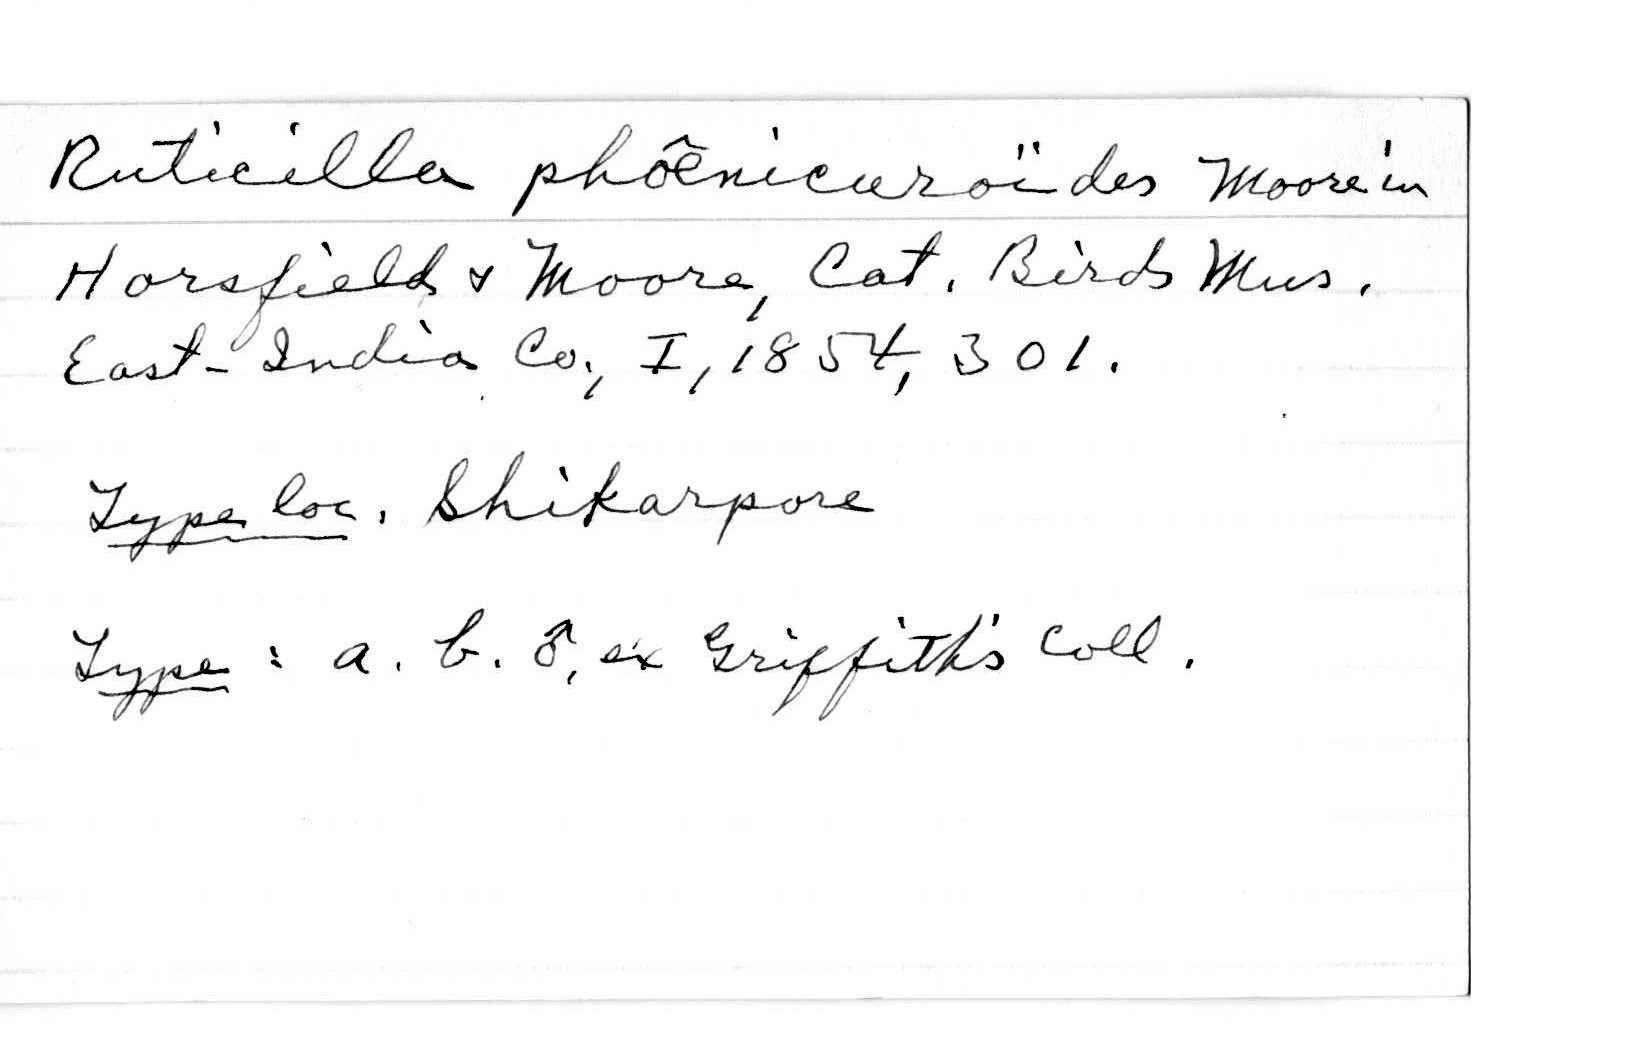 Ruticilla phoenicuroïdes Moore in
Horsfield & Moore, Cat. Birds Mus.
East-India Co., I, 1854, 301.
Type loc. Shikarpore
Type : a. b. ♂, ex Griffith's Coll.